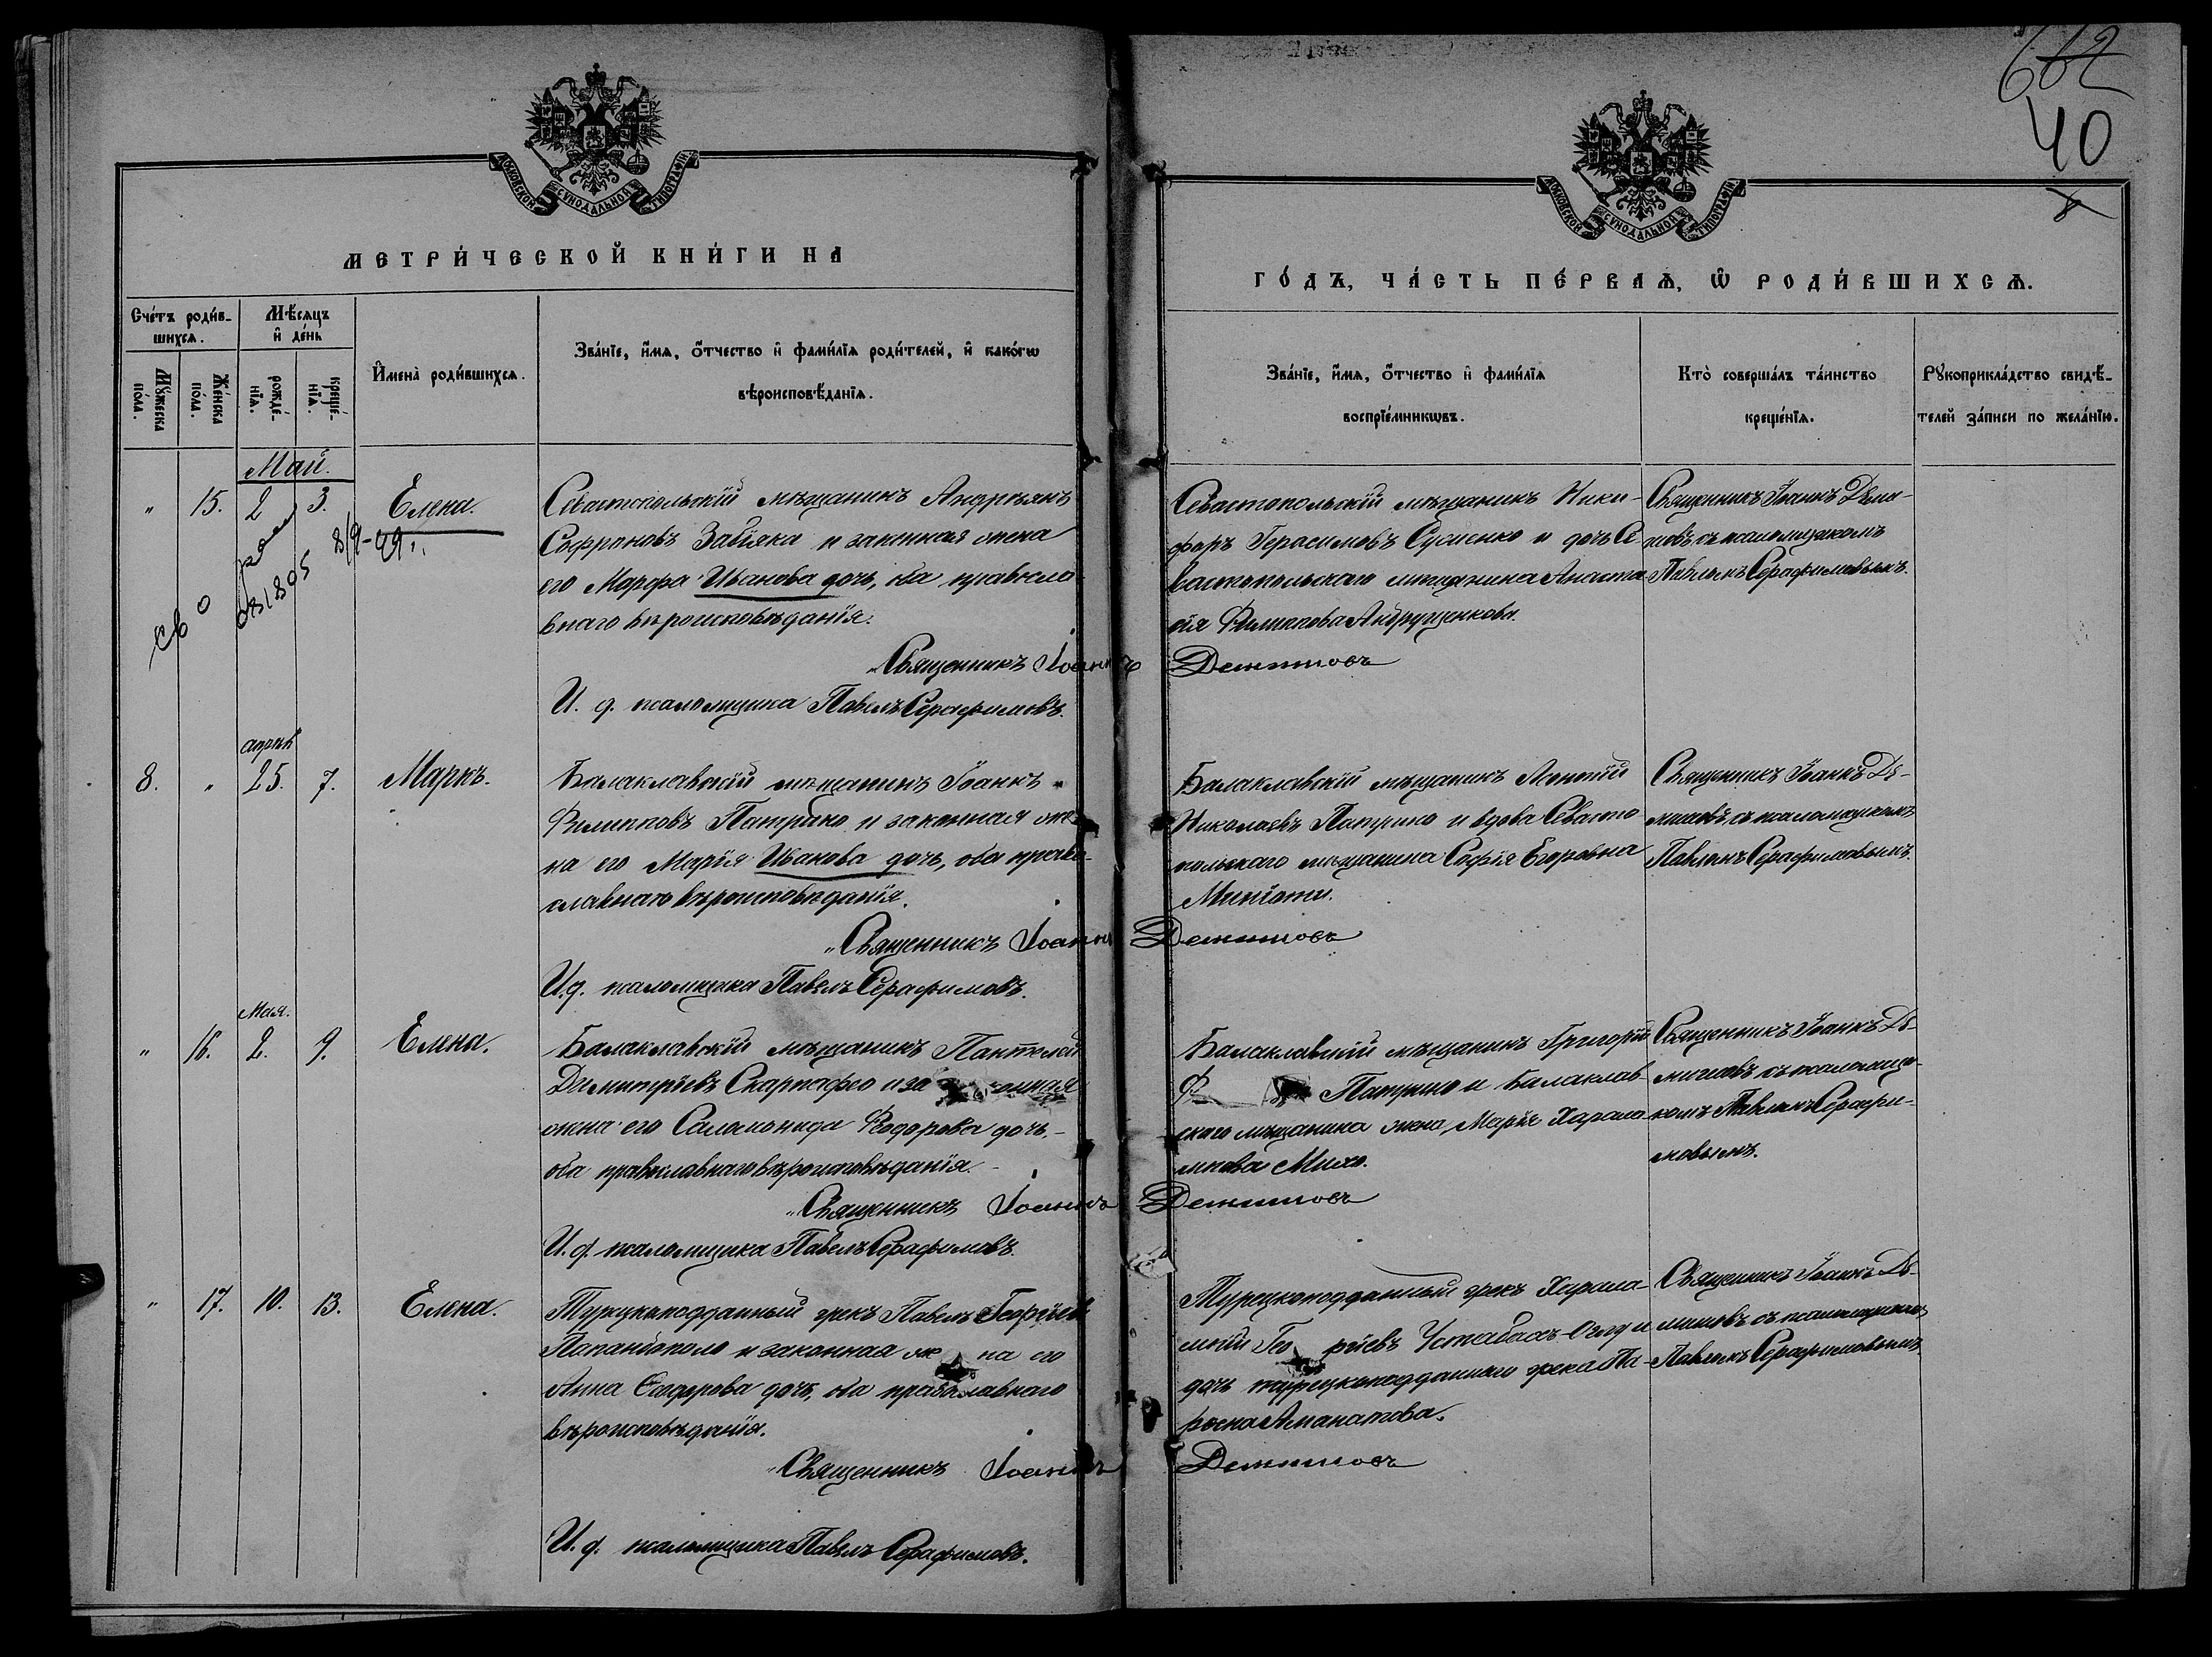 662
40
МОСКОВСКОЙ СѴНОДАЛЬНОЙ ТИПОГРАФІИ
МОСКОВСКОЙ СѴНОДАЛЬНОЙ ТИПОГРАФІИ
МЕТРИ́ЧЕСКОЙ КНИ́ГИ НА
ГО́ДЪ, ЧА́СТЬ ПЕ́РВАѦ, Ѿ РОДИ́ВШИХСѦ.
Сче́тъ роди́в-
шихсѧ.
Мѣ́сѧцъ
и҆ де́нь
Мꙋ́жеска
по́ла.
Же́нска
по́ла.
рожде́-
нїѧ.
креще́-
нїѧ.
И҆мена̀ роди́вшихсѧ.
Зва́нїе, и҆́мѧ, ѻ҆́тчество и҆ фами́лїѧ роди́телей, и҆ како́гѡ
вѣроисповѣ́данїѧ.
Зва́нїе, и҆́мѧ, ѻ҆́тчество и҆ фами́лїѧ
воспрїе́мникѡвъ.
Кто̀ соверша́лъ та́инство
креще́нїѧ.
Рꙋкоприкла́дство свидѣ́-
телей за́писи по жела́нїю.
Май.
" 15. 2 3. Елена.
Севастопольскій мѣщанинъ Андреянъ
Софроновъ Забіяка и законная жена
его Марфа Иванова дочь, оба правосла
внаго вѣроисповѣданія.
Священникъ Іоаннъ Демишовъ
И. д. псаломщика Павелъ Серафимовъ.
Севастопольскій мѣщанинъ Ники-
форъ Герасимовъ Сусиенко и дочь Се
вастопольскаго мѣщанина Анаста
сія Филиппова Андрущенкова.
Священникъ Іоаннъ Деми-
шовъ съ псаломщикомъ
Павломъ Серафимовымъ.
апрѣль
8. " 25. 7. Маркъ.
Балаклавскій мѣщанинъ Іоаннъ
Филипповъ Патрико и законная же-
на его Марія Иванова дочь, оба право-
славнаго вѣроисповѣданія.
Священникъ Іоаннъ Демишовъ
И. д. псаломщика Павелъ Серафимовъ.
Балаклавскій мѣщанинъ
Николаевъ Патрико и вдова Севасто
польскаго мѣщанина Софія Егоровна
Священникъ Іоаннъ Де-
мишовъ, съ псаломщикомъ
Павломъ Серафимовымъ.
Мая.
" 16. 2. 9. Елена.
Балаклавскій мѣщанинъ Пантелей
Димитріевъ Скарлафео и законная
жена его Саломонида Ѳеодорова дочь,
оба православнаго вѣроисповѣданія.
Священникъ Іоаннъ Демишовъ
И. д. псаломщика Павелъ Серафимовъ.
Балаклавскій мѣщанинъ Григорій
Патрико и Балаклав-
скаго мѣщанина жена Марія Харала
мпова Михо.
Священникъ Іоаннъ Де-
мишовъ съ псаломщи-
комъ Павломъ Серафи-
мовымъ.
" 17. 10. 13. Елена.
Турецкоподданный грекъ Павелъ Георгіевъ
Папандополо и законная жена его
Анна Ѳеодорова дочь, оба православнаго
вѣроисповѣданія.
Священникъ Іоаннъ Демишовъ
И. д. псаломщика Павелъ Серафимовъ.
Турецкоподданный грекъ Харала-
мпій Георгіевъ Устабашъ-Оглу и
дочь турецкоподданнаго грека Па-
Аманатова.
Священникъ Іоаннъ Де-
мишовъ съ псаломщикомъ
Павломъ Серафимовымъ.